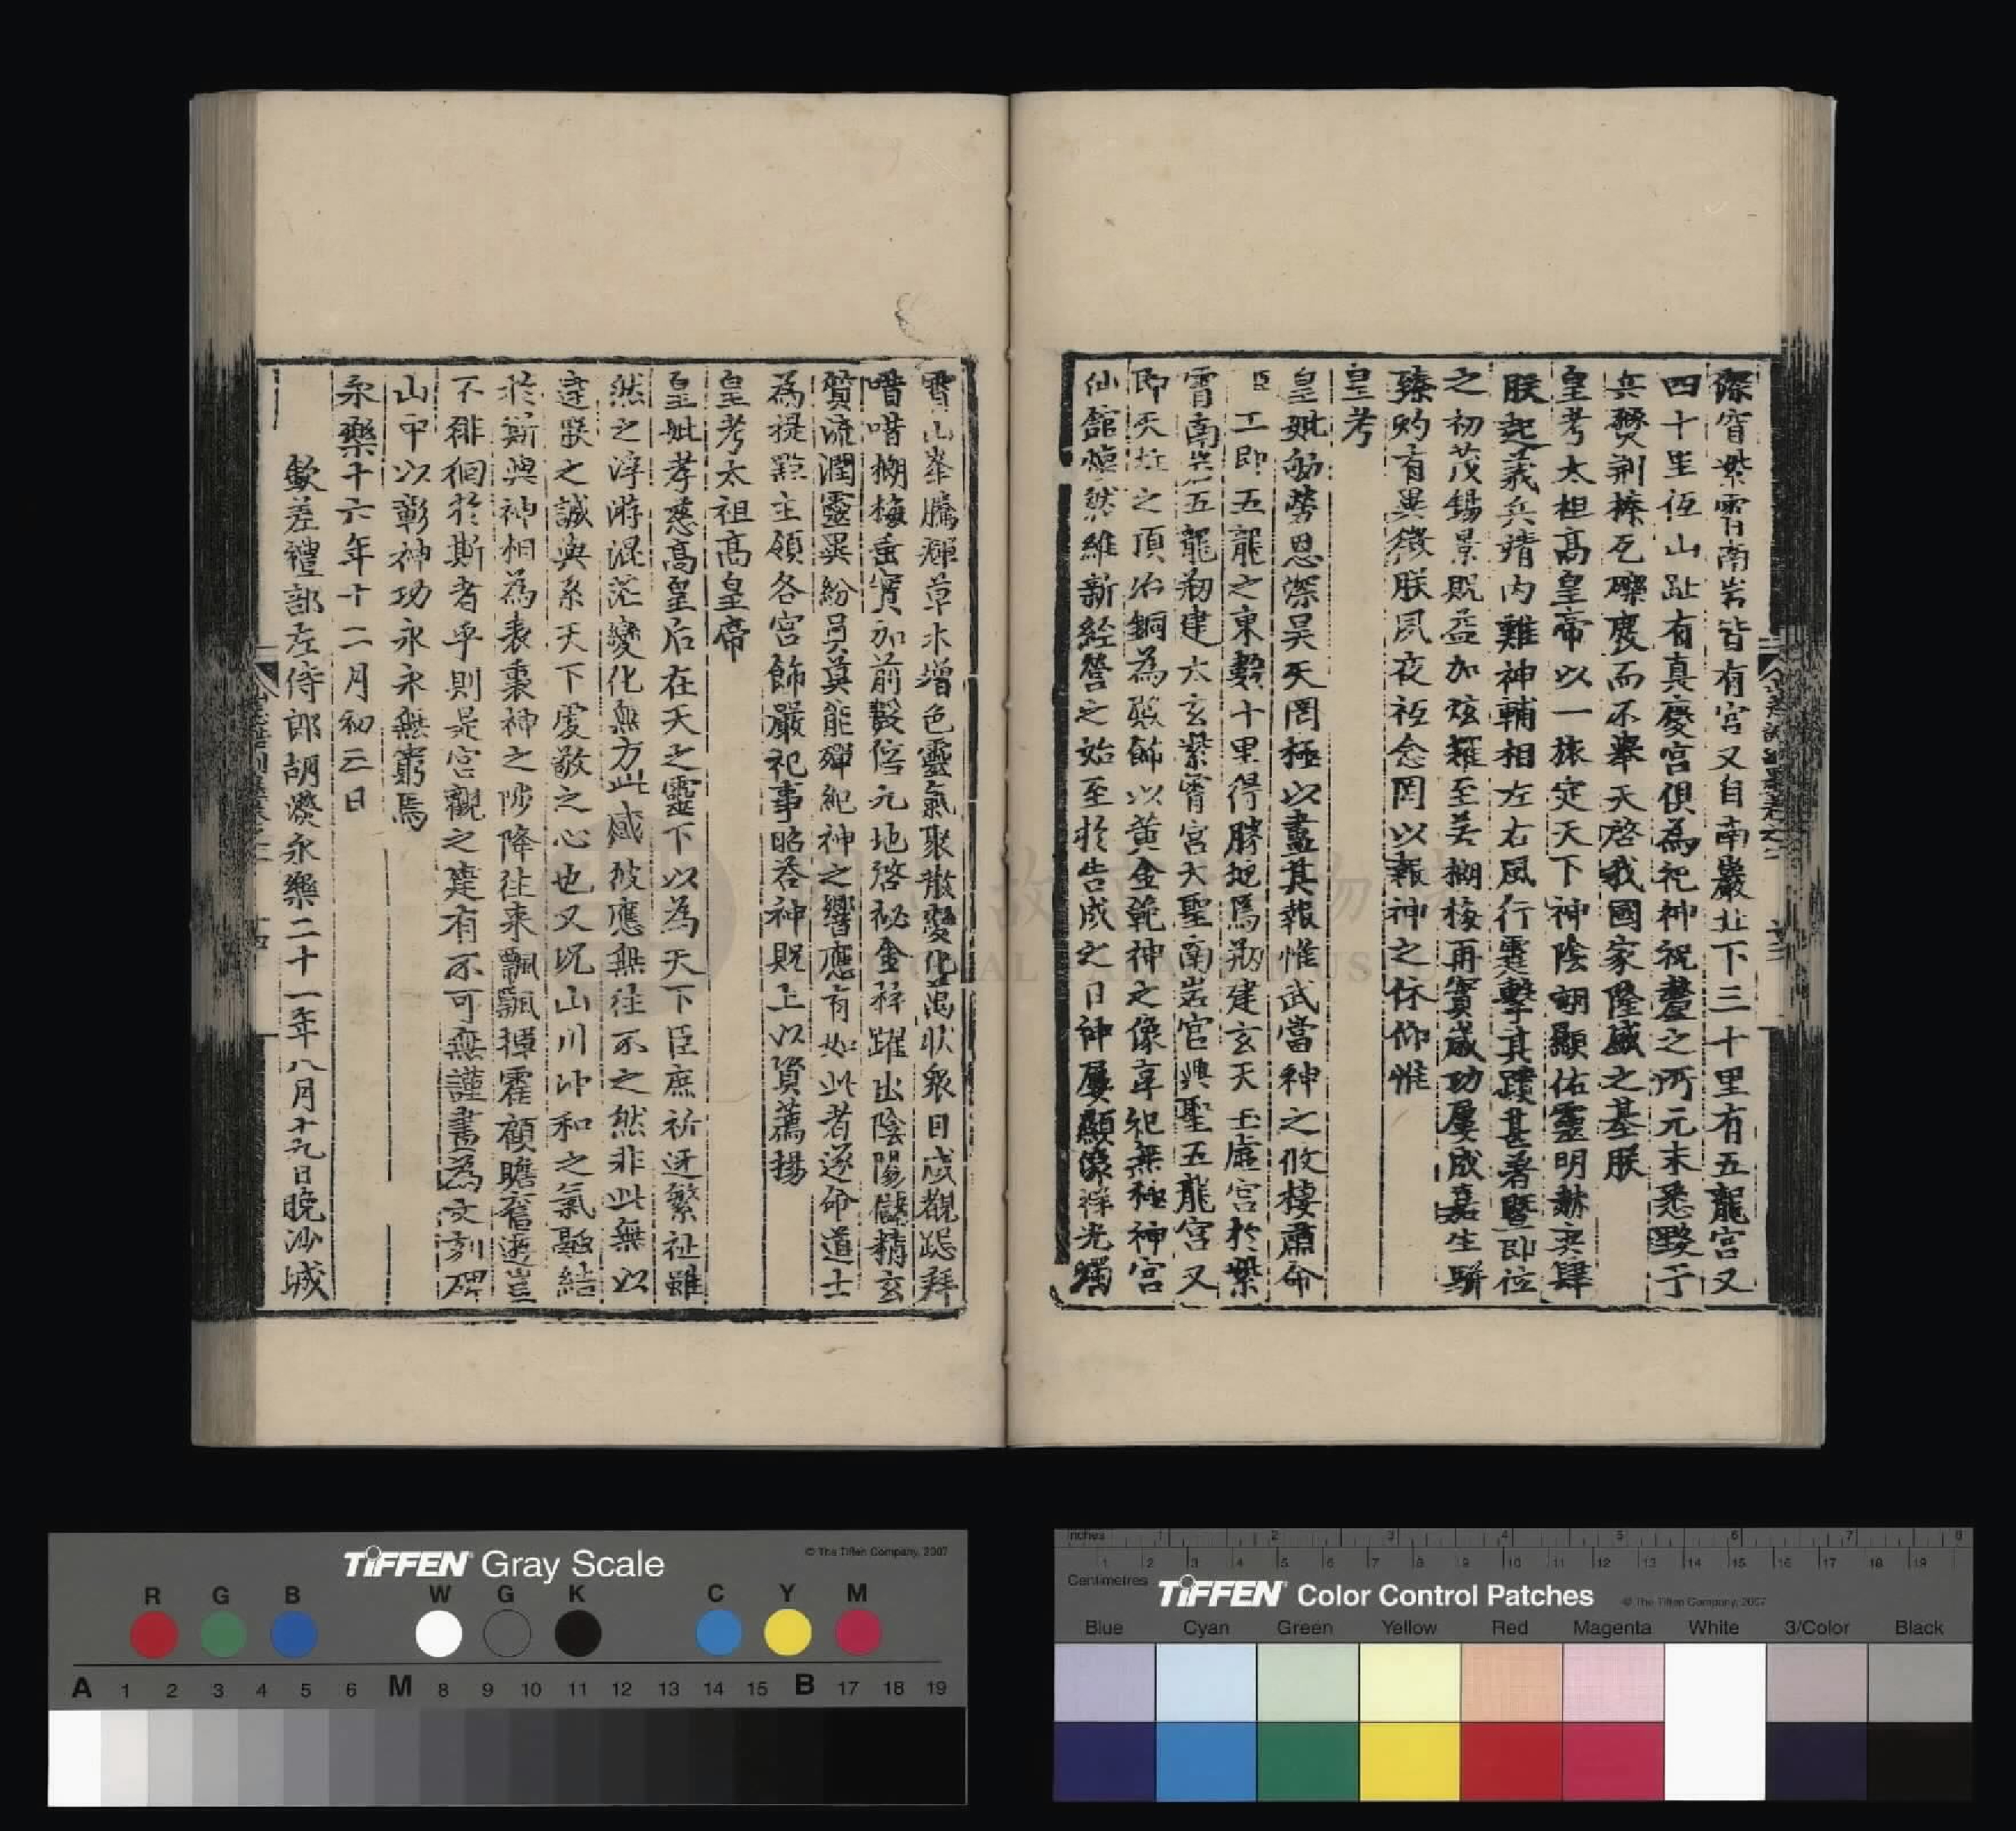 深官紫霄南岩皆有宮又自南巖北下三十里有五龍宮又
四十里伾山趾有真慶宮俱為祀神祝釐之所元末悉毀于
兵燹剥榛瓦礫廢而不舉天啓我國家隆盛之基朕
皇考太祖高皇帝以一旅定天下神陰翊顯佑靈明赫奕肆
朕起義兵靖內難神輔相左右風行霆擊其蹟甚著暨即位
之初茂錫景貺益加炫耀至若榔梅再實咸功屢成嘉生駢
臻灼有異徵朕夙夜祗念罔以報神之休仰惟
皇考
皇妣劬勞恩深昊天罔極以盡其報惟武當神之攸棲肅命
臣工即五龍之東數十里得勝地焉剏建玄天玉虛宮於紫
霄南岩五龍剏建太玄紫霄宮大聖南岩宮興聖五龍宮又
即天柱之頂冶銅為殿飾以黃金範神之像享祀無極神宮
仙舘煥然維新經營之始至於告成之日神屢顯像祥光燭
霄山峯騰輝草木增色靈氣聚散變化萬狀衆目咸觀跽拜
嘖嘖榔梅垂實加前數倍元地啓祕金梓躍出陰陽儲精玄
質流潤靈異紛員莫能殫紀神之響應有如此者遂命道士
為提點主領各宮飾嚴祀事昭荅神貺上以資薦揚
皇考太祖高皇帝
皇妣孝慈高皇后在天之靈下以為天下臣庶祈迓繁祉雖
然之浮游混茫變化無方此感彼應無往不之然非此無以
達朕之誠與系天下愛敬之心也又況山川冲和之氣融結
於斯與神相為表裏神之陟降往来飄飄揮霍顧瞻舊遊豈
不徘徊於斯者乎則是宮觀之建有不可無謹書為文刻碑
山中以彰神功永永無窮焉
永樂十六年十二月初三日
欽差禮部左侍郎胡濙永樂二十一年八月十九日晚沙城
國立故宮博物院
NATIONAL PALACE MUSEUM
TIFFEN Gray Scale
© The Tiffen Company, 2007
R G B W G K C Y M
A 1 2 3 4 5 6 M 8 9 10 11 12 13 14 15 B 17 18 19
Inches 1 2 3 4 5 6 7 8
1 2 3 4 5 6 7 8 9 10 11 12 13 14 15 16 17 18 19
Centimetres
TIFFEN Color Control Patches
© The Tiffen Company, 2007
Blue Cyan Green Yellow Red Magenta White 3/Color Black